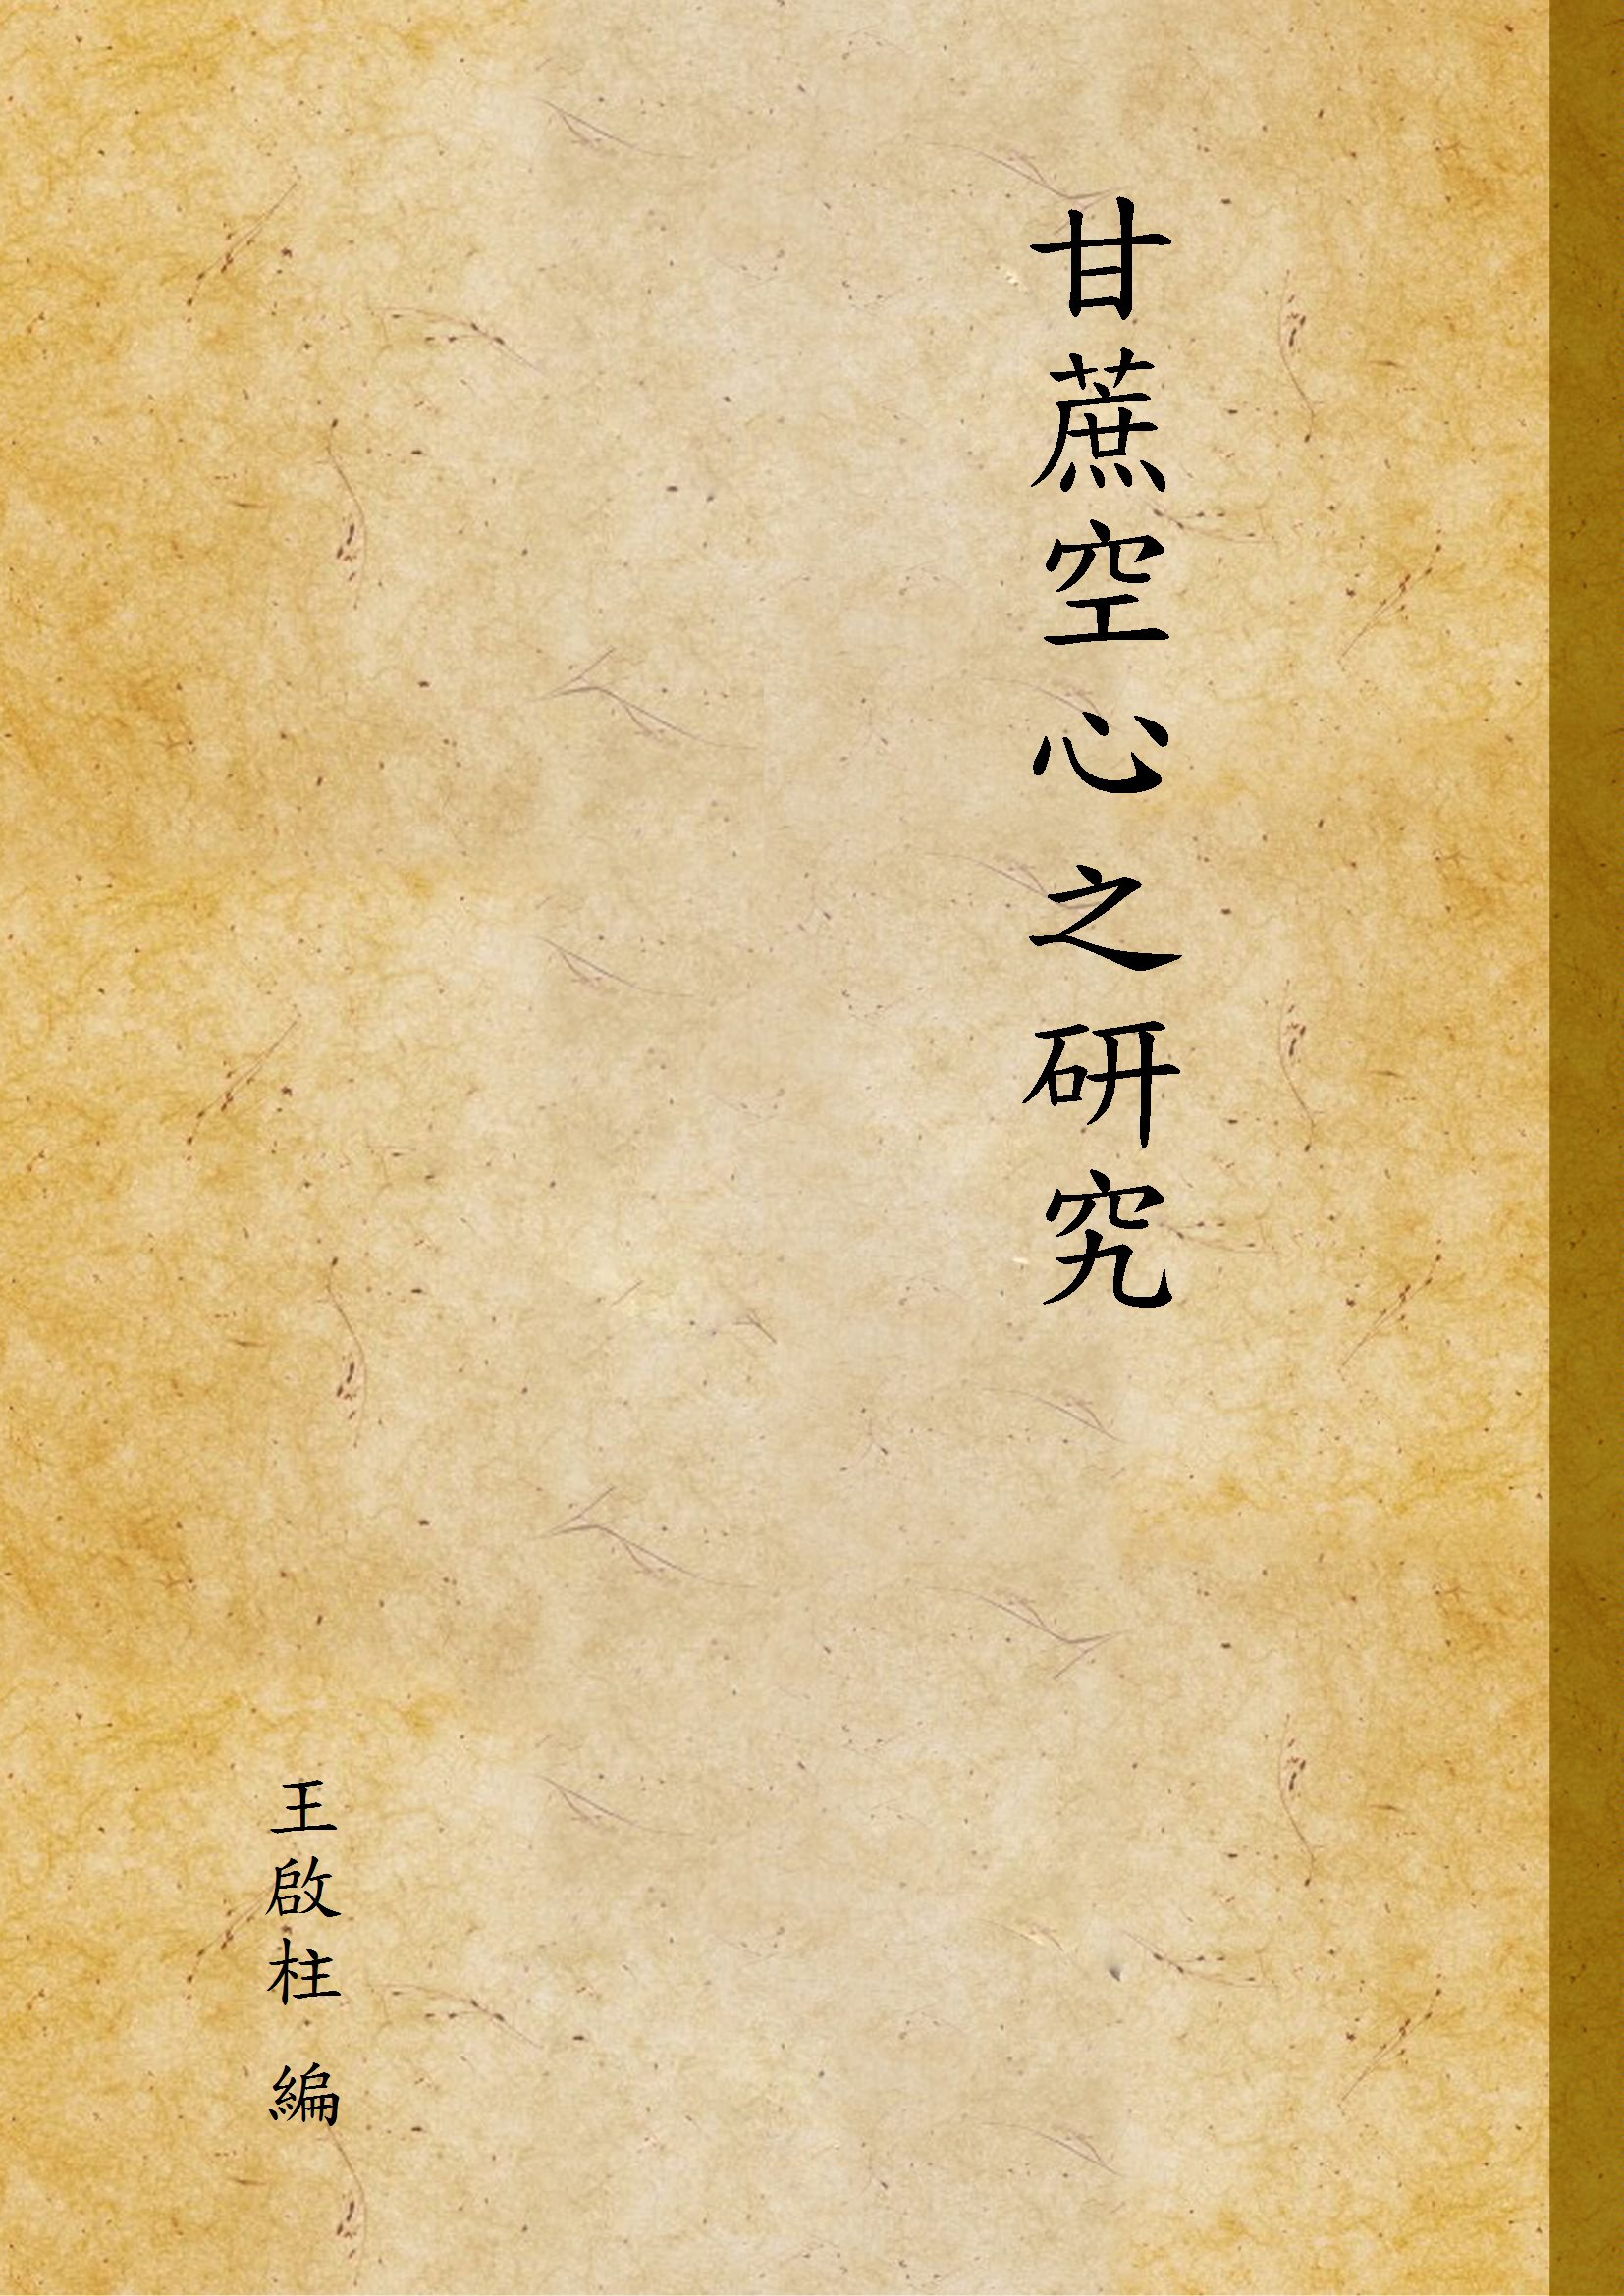 甘蔗空心之研究
王啟柱 編